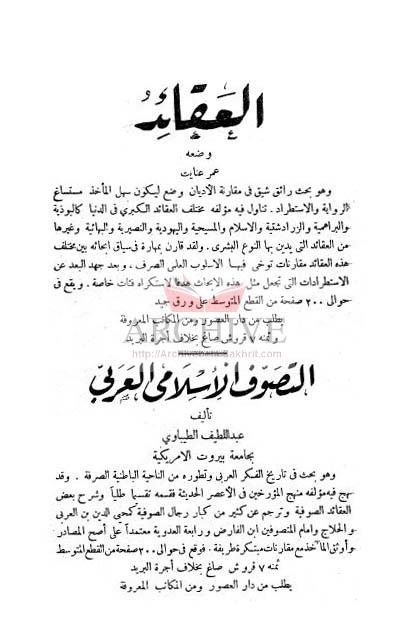 العقائد
وضعه
عمر عنايت
وهو بحث رائق شيق في مقارنة الاديان وضع ليكون سهل المأخذ مستساغ
الرواية والاستطراد . تناول فيه مؤلفه مختلف العقائد الكبرى في الدنيا كالبوذية
والبراهمية والزرادشتية والاسلام والمسيحية واليهودية والنصيرية والبهائية وغيرها
من العقائد التي يدين بها النوع البشرى . ولقد قارن بمهارة في سياق ابحاثه بين مختلف
هذه العقائد مقارنات توخى فيها الاسلوب العلمى الصرف . وبعد جهد البعد عن
الاستطرادات التي تجعل مثل هذه الابحاث هدفا لاستكراه فئات خاصة . ويقع في
حوالى ٢٠٠ صفحة من القطع المتوسط على ورق جيد
يطلب من دار العصور ومن المكاتب المعروفة
وثمنه ٧ قروش صاغ بخلاف أجرة البريد
ARCHIVE
http://Archivebeta.Sakhrit.com
التصوف الاسلامى العربى
تأليف
عبد اللطيف الطيباوي
بجامعة بيروت الامريكية
وهو بحث في تاريخ الفكر العربى وتطوره من الناحية الباطنية الصرفة . وقد
نهج فيه مؤلفه منهج المؤرخين في الأعصر الحديثة فقسمه تقسيما طلياً وشرح بعض
العقائد الصوفية وترجم عن كثير من كبار رجال الصوفية كمحيى الدين بن العربى
والحلاج وامام المتصوفين ابن الفارض ورابعة العدوية معتمداً على أصح المصادر
وأوثق المآخذ مع مقارنات مبتكرة طريفة . فوقع في حوالى ٢٠٠ صفحة من القطع المتوسط
ثمنه ٧ قروش صاغ بخلاف أجرة البريد
يطلب من دار العصور ومن المكاتب المعروفة